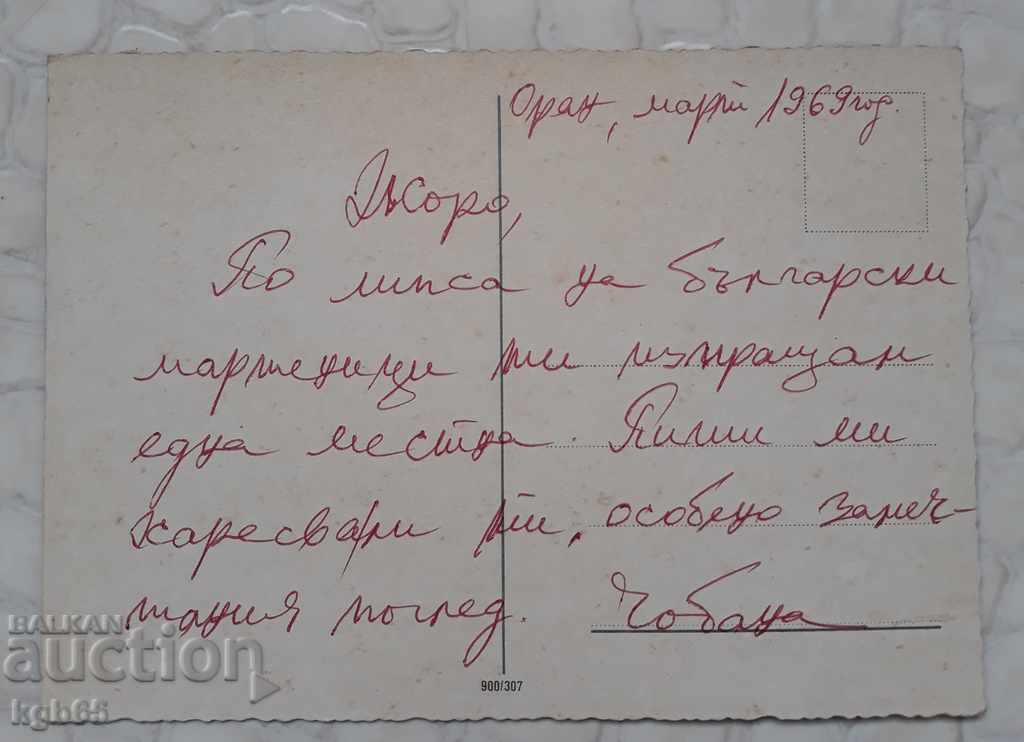 Оран, март 1969 год.
Жоро,
По липса на български
мартеници ти изпращам
една местна. Пиши ми
харесва ли ти, особено замеч-
тания поглед. Чобана
900/307
BALKAN
auction
kgb65